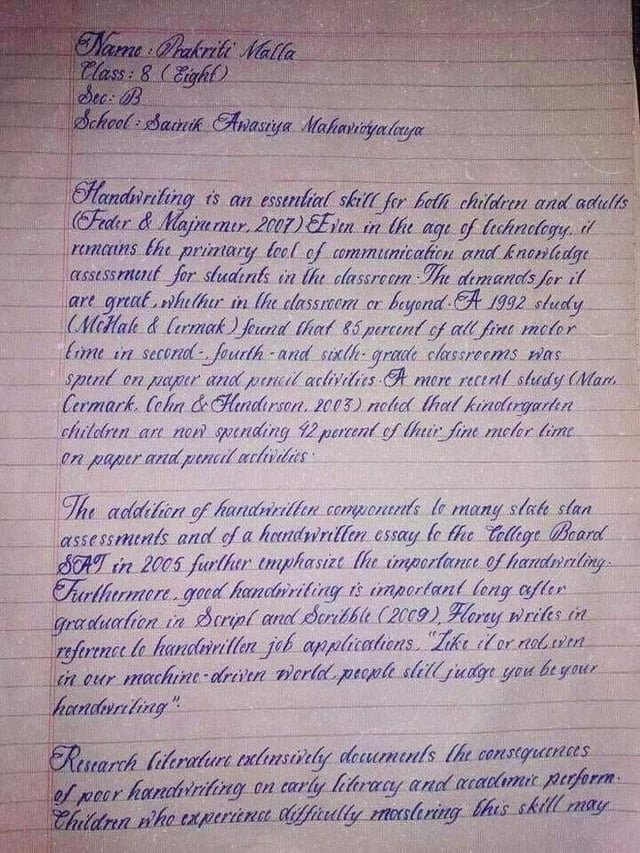 Name : Prakriti Malla
Class : 8 ( Eight )
Sec : B
School : Sainik Awasiya Mahavidyalaya
Handwriting is an essential skill for both children and adults
(Feder & Majnemer, 2007) Even in the age of technology, it
remains the primary tool of communication and knowledge
assessment for students in the classroom. The demands for it
are great, whether in the classroom or beyond. A 1992 study
(McHale & Cermak) found that 85 percent of all fine motor
time in second-, fourth-and sixth-grade classrooms was
spent on paper and pencil activities. A more recent study (Marr,
Cermark, Cohn & Henderson, 2003) noted that kindergarten
children are now spending 42 percent of their fine motor time
on paper and pencil activities.
The addition of handwritten components to many state stan
assessments and of a handwritten essay to the College Board
SAT in 2005 further emphasize the importance of handwriting.
Furthermore, good handwriting is important long after
graduation in Script and Scribble (2009), Florey writes in
reference to handwritten job applications, "Like it or not, even
in our machine-driven world, people still judge you be your
handwriting".
Research literature extensively documents the consequences
of poor handwriting on early literacy and academic perform.
Children who experience difficulty mastering this skill may